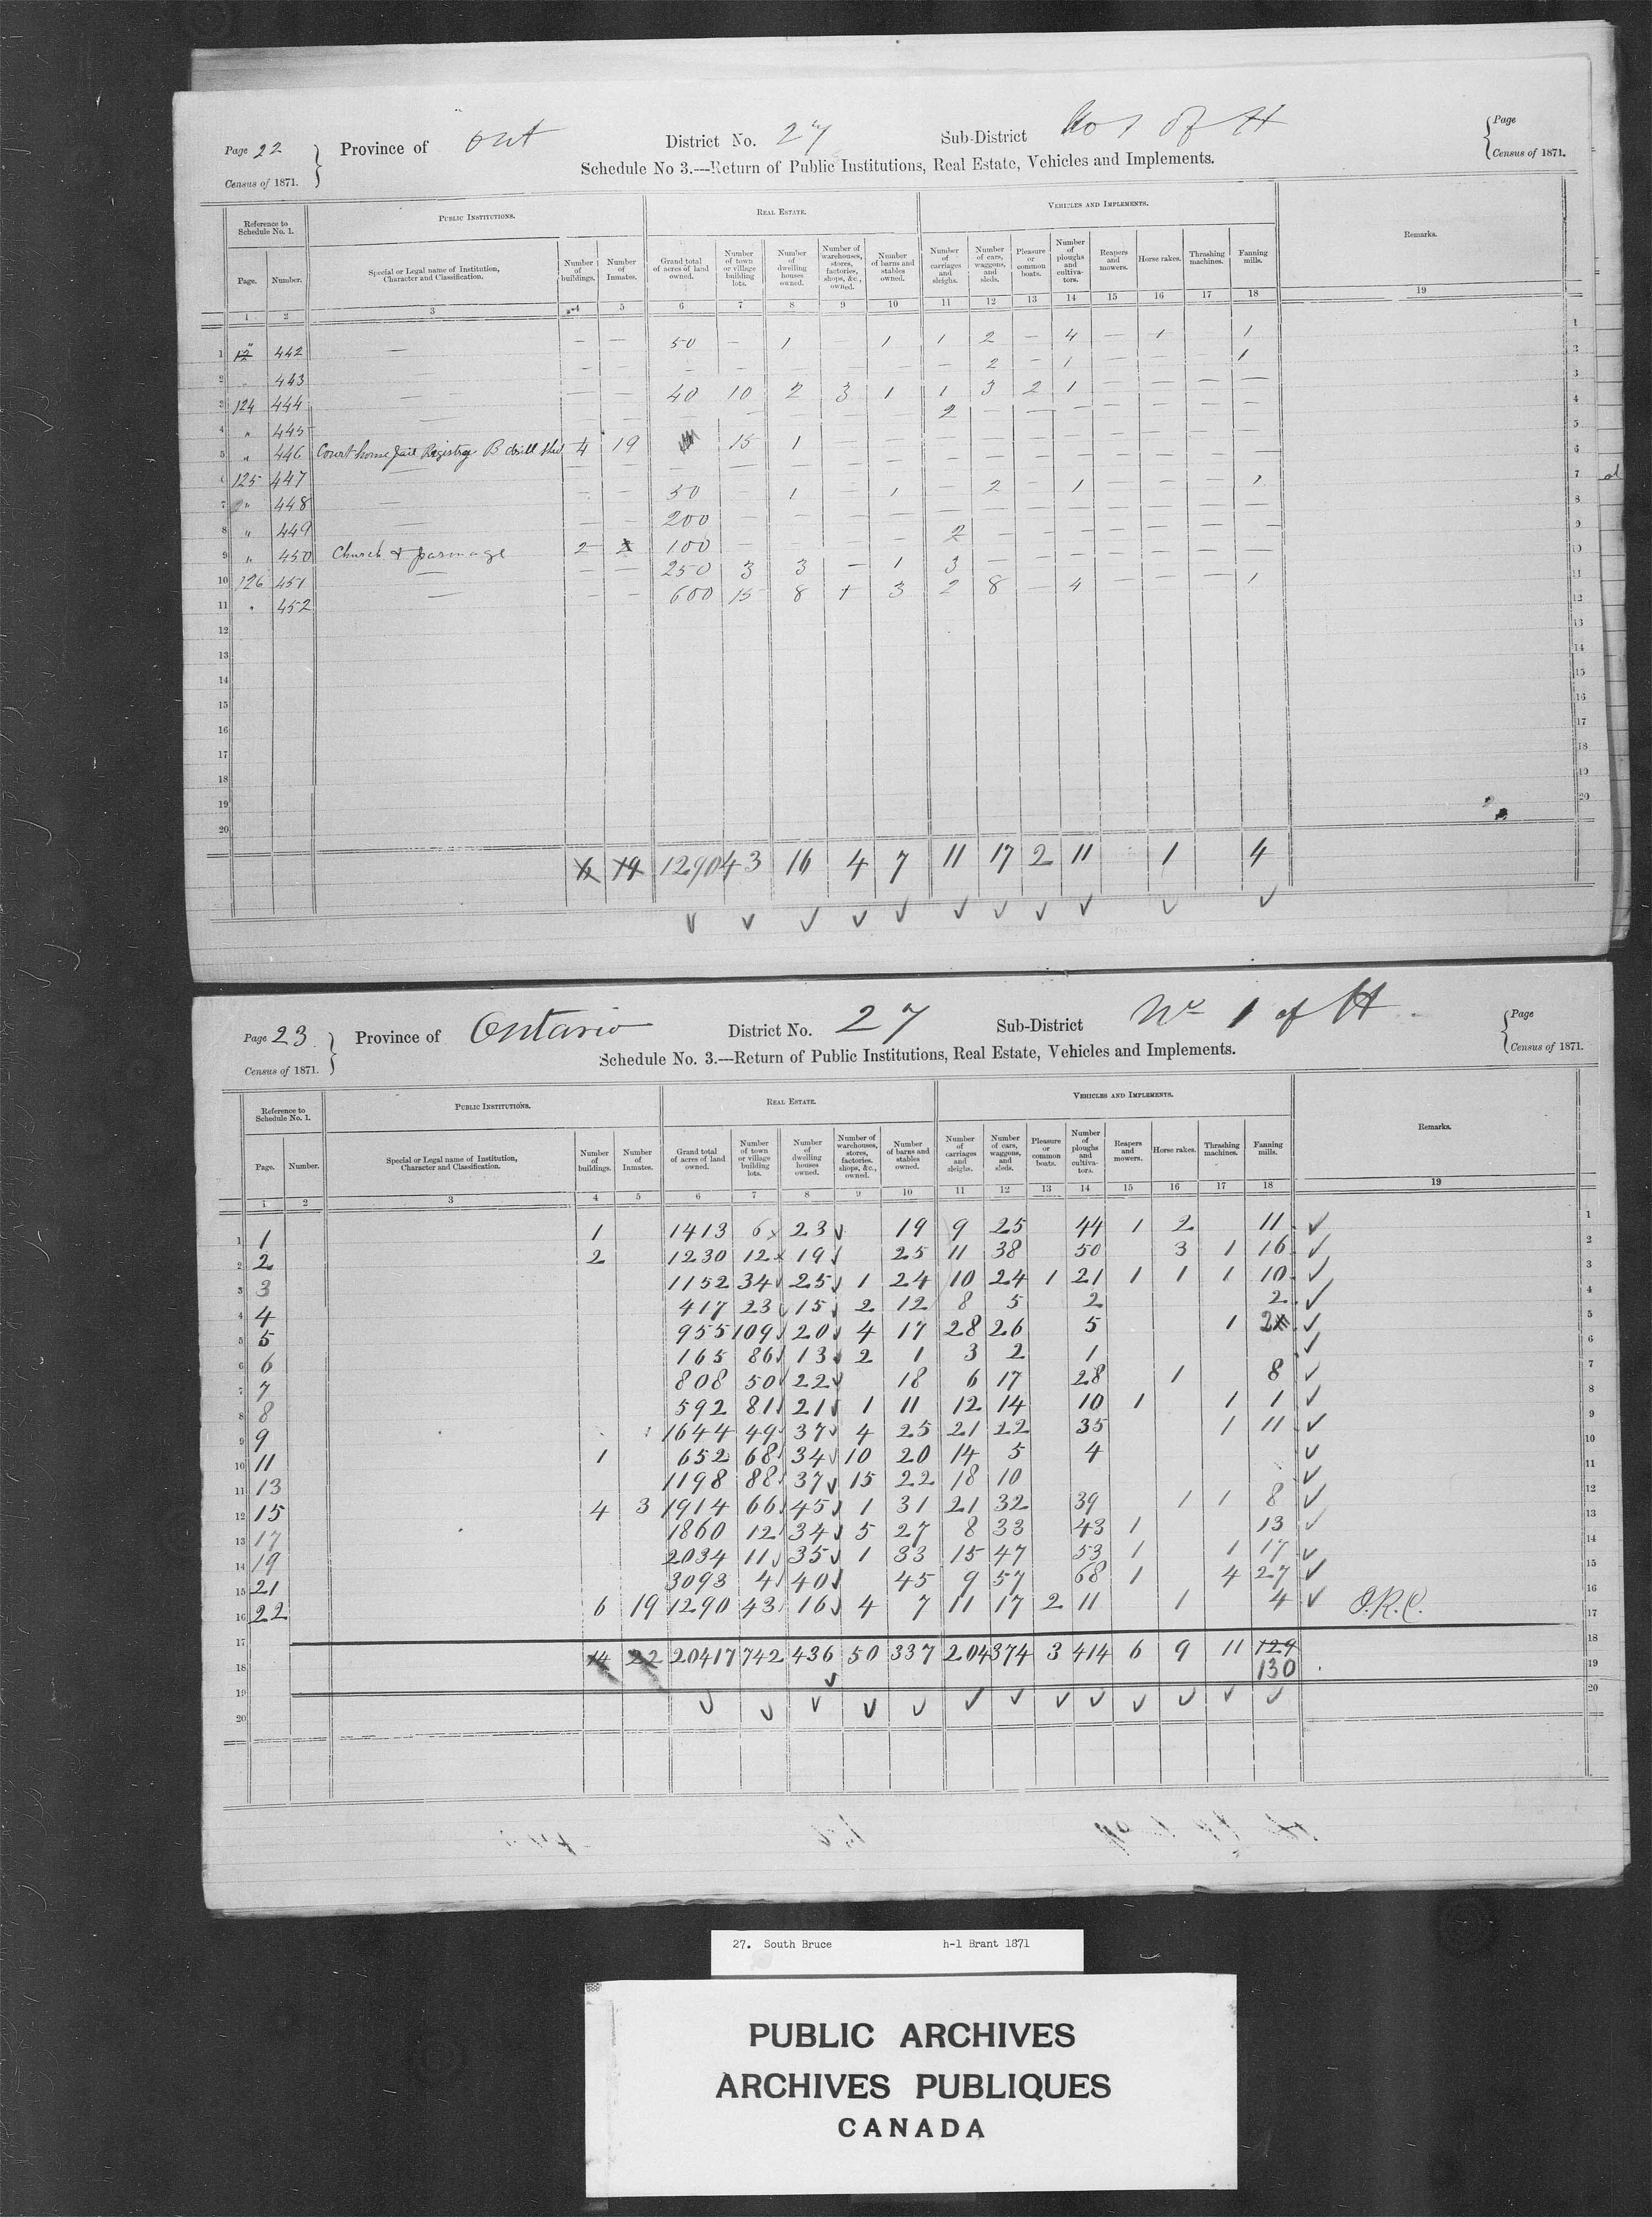 Page 22 Province of Ont District No. 27 Sub-District No 1 of H Page
Census of 1871. Schedule No 3.---Return of Public Institutions, Real Estate, Vehicles and Implements. Census of 1871.
Reference to Schedule No. 1. PUBLIC INSTITUTIONS. REAL ESTATE. VEHICLES AND IMPLEMENTS. Remarks.
Page. Number. Special or Legal name of Institution, Character and Classification. Number of buildings. Number of Inmates. Grand total of acres of land owned. Number of town or village building lots. Number of dwelling houses owned. Number of warehouses, stores, factories, shops, &c., owned. Number of barns and stables owned. Number of carriages and sleighs. Number of cars, waggons, and sleds. Pleasure or common boats. Number of ploughs and cultivators. Reapers and mowers. Horse rakes. Thrashing machines. Fanning mills.
1 2 3 4 5 6 7 8 9 10 11 12 13 14 15 16 17 18 19
1 442 — — — 50 — 1 — 1 1 2 — 4 — 1 1 1
2 443 — — — — — — — — — 2 — 1 — — — 1
3 124 444 — — — 40 10 2 3 1 1 3 2 1 — — — —
4 " 445 — — — — — — — — 2 — — — — — — —
5 " 446 Court house Jail Registry B drill shed 4 19 15 1 — — — — — — — — — —
6 125 447 — — — — — — — — — — — — — — —
7 " 448 — — — 50 — 1 — 1 2 — 1 — — — 1
8 " 449 — — — 200 — — — — — — — — — — — —
9 " 450 Church & parsonage 2 100 — — — — 2 — — — — — — —
10 126 451 — — — 250 3 3 — 1 3 — — — — — — —
11 " 452 — — — 600 15 8 + 3 2 8 — 4 — — 1
12
13
14
15
16
17
18
19
20
6 19 1290 43 16 4 7 11 17 2 11 1 4
Page 23. Province of Ontario District No. 27 Sub-District No 1 of H Page
Census of 1871. Schedule No. 3.---Return of Public Institutions, Real Estate, Vehicles and Implements. Census of 1871.
Reference to Schedule No. 1. PUBLIC INSTITUTIONS. REAL ESTATE. VEHICLES AND IMPLEMENTS. Remarks.
Page. Number. Special or Legal name of Institution, Character and Classification. Number of buildings. Number of Inmates. Grand total of acres of land owned. Number of town or village building lots. Number of dwelling houses owned. Number of warehouses, stores, factories, shops, &c., owned. Number of barns and stables owned. Number of carriages and sleighs. Number of cars, waggons, and sleds. Pleasure or common boats. Number of ploughs and cultivators. Reapers and mowers. Horse rakes. Thrashing machines. Fanning mills.
1 2 3 4 5 6 7 8 9 10 11 12 13 14 15 16 17 18 19
1 1 1 1413 6 23 19 9 25 44 1 2 11
2 2 2 1230 12 19 25 11 38 50 3 1 16
3 3 1152 34 25 1 24 10 24 1 21 1 1 1 10
4 4 417 23 15 2 12 8 5 2 2
5 5 955 109 20 4 17 28 26 5 1 2
6 6 165 86 13 2 1 3 2 1
7 7 808 50 22 18 6 17 28 1 8
8 8 592 81 21 1 11 12 14 10 1 1 1
9 9 1644 49 37 4 25 21 22 35 1 11
10 11 1 652 68 34 10 20 14 5 4
11 13 1198 88 37 15 22 18 10
12 15 4 3 1914 66 45 1 31 21 32 39 1 1 8
13 17 1860 12 34 5 27 8 33 43 1 13
14 19 2034 11 35 1 33 15 47 53 1 1 17
15 21 3093 4 40 45 9 57 68 1 4 27
16 22 6 19 1290 43 16 4 7 11 17 2 11 1 4 O.R.C.
17
18 14 22 20417 742 436 50 337 204 374 3 414 6 9 11 129
130
19
20
27. South Bruce h-1 Brant 1871
PUBLIC ARCHIVES
ARCHIVES PUBLIQUES
CANADA